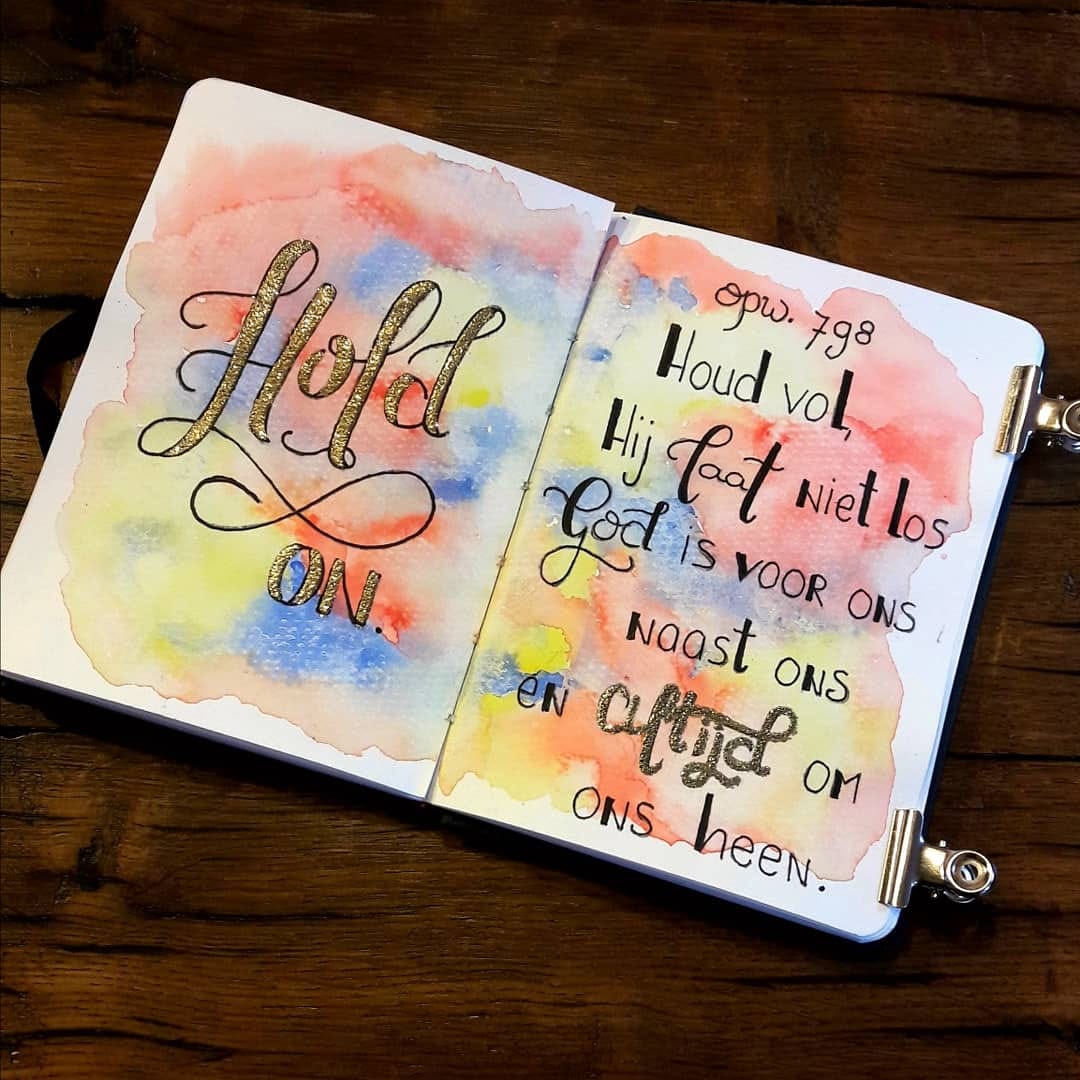 Hold
ON.
opw. 798
Houd vol,
Hij laat niet los
God is voor ons
naast ons
en altijd om
ons heen.